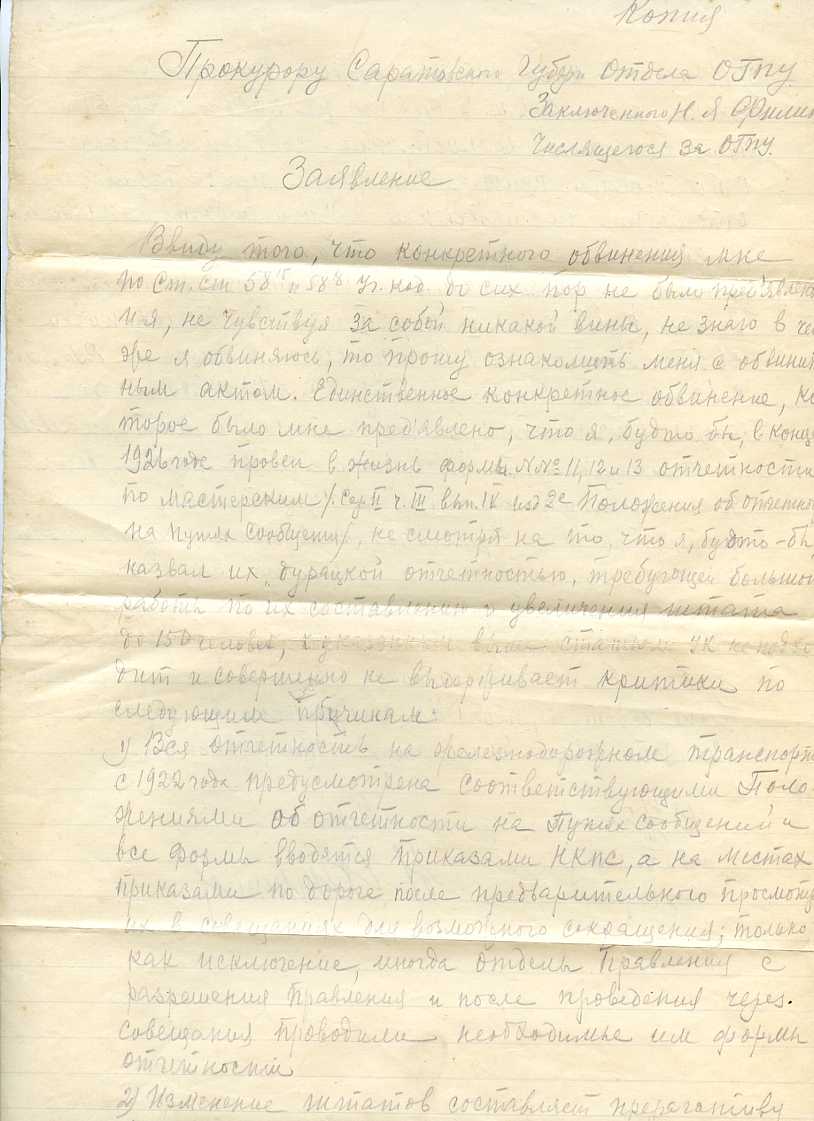 Копия
Прокурору Саратовского Губерн Отдела ОГПУ.
Заключенного Н. Я Филип
Числящегося за ОГПУ.
Заявление
Ввиду того, что конкретного обвинения мне
по Ст. Ст 58 и 58⁸ Уг. код до сих пор не было пред'явлено
и я, не чувствуя за собой никакой вины, не знаю в чем
же я обвиняюсь, то прошу ознакомить меня с обвинит
ным актом. Единственное конкретное обвинение, ко
торое было мне пред'явлено, что я, будто бы, в конце
1926 года провел в жизнь формы NNº 11, 12 и 13 отчетности
по мастерским /. Сер II ч. III вып. IX изд 2е Положения об отчетнос
на путях сообщения/, не смотря на то, что я, будто-бы
назвал их дурацкой отчетностью, требующей большой
работы по их составлению и увеличения штата
до 150 человек, к указанным выше статьям УК не подхо
дит и совершенно не выдерживает критики по
следующим причинам:
1) Вся отчетность на железнодорожном транспорте
с 1922 года предусмотрена соответствующими Поло
жениями об отчетности на Путях Сообщений и
все формы вводятся приказами НКПС, а на местах
приказами по дороге после предварительного просмотра
их в совещаниях для возможного сокращения; только
как исключение, иногда отделы Правления с
разрешения Правления и после проведения через.
совещания проводили необходимые им формы
отчетности
2) Изменение штатов составляет прерогативу